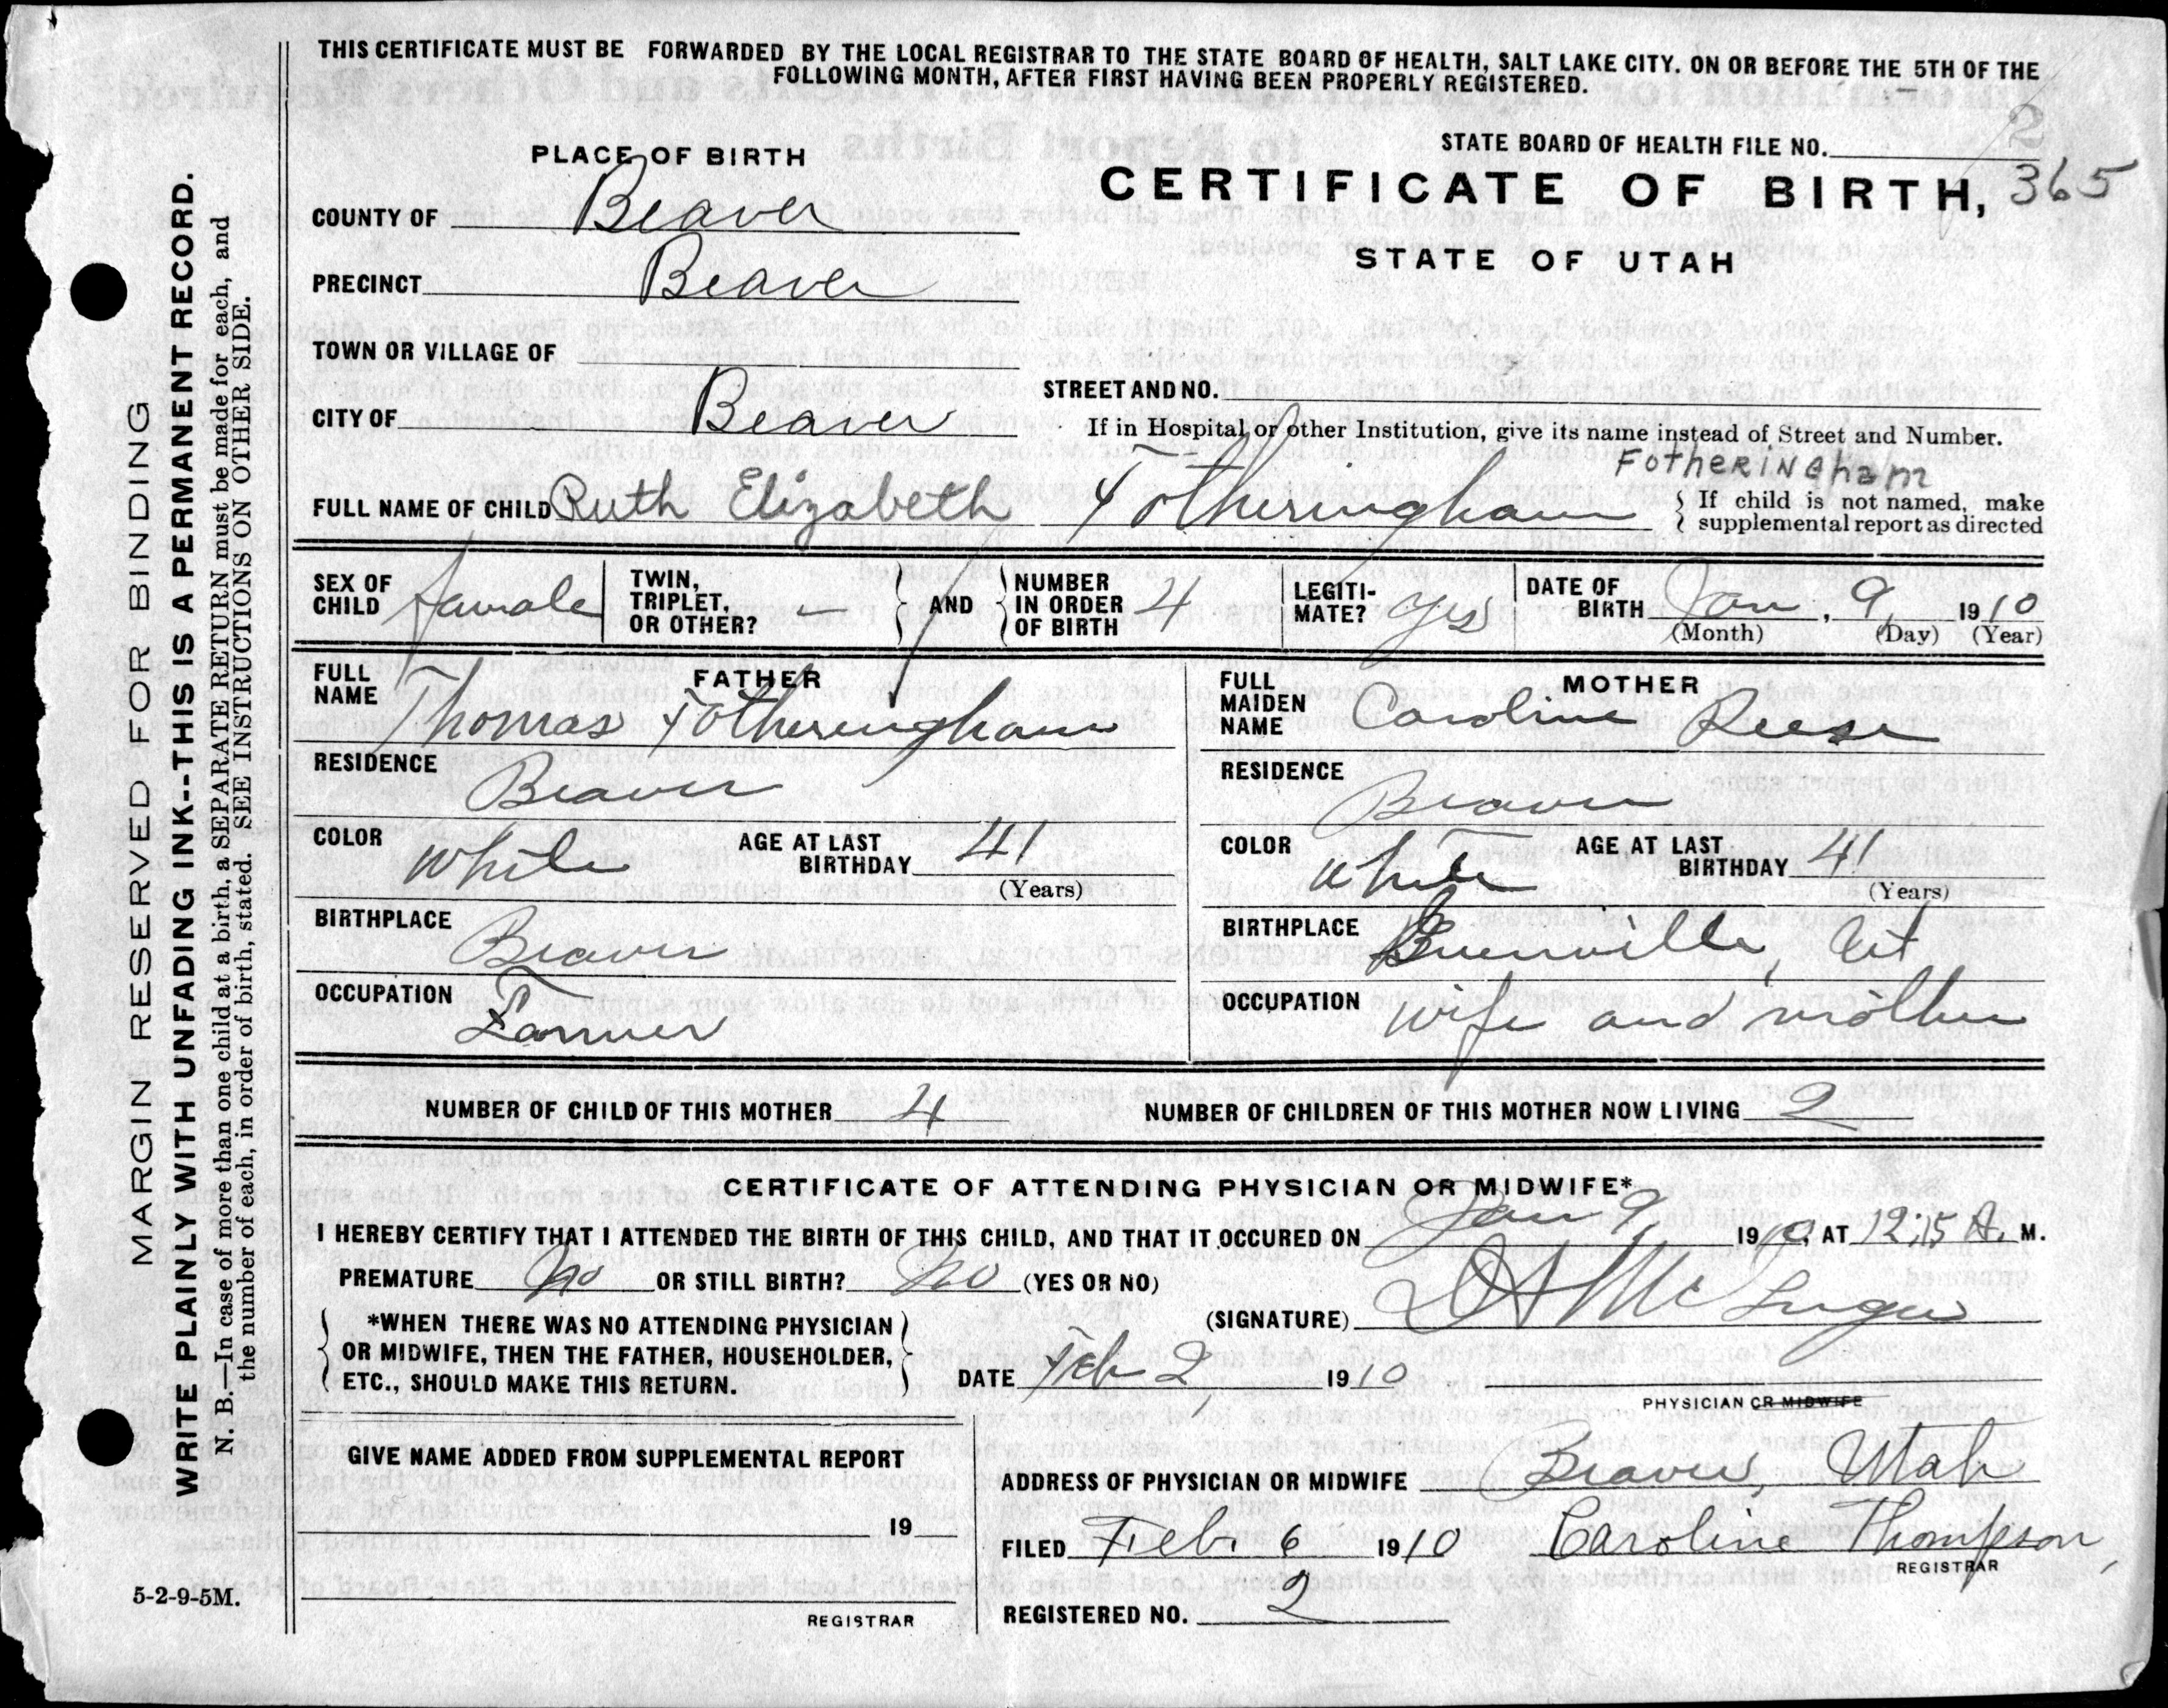 THIS CERTIFICATE MUST BE FORWARDED BY THE LOCAL REGISTRAR TO THE STATE BOARD OF HEALTH, SALT LAKE CITY. ON OR BEFORE THE 5TH OF THE
FOLLOWING MONTH, AFTER FIRST HAVING BEEN PROPERLY REGISTERED.
2
PLACE OF BIRTH
STATE BOARD OF HEALTH FILE NO.
CERTIFICATE OF BIRTH, 365
COUNTY OF Beaver
STATE OF UTAH
PRECINCT Beaver
TOWN OR VILLAGE OF
STREET AND NO.
CITY OF Beaver
If in Hospital or other Institution, give its name instead of Street and Number.
FotheRINGham
FULL NAME OF CHILD Ruth Elizabeth Fotheringham
If child is not named, make
supplemental report as directed
SEX OF CHILD female
TWIN, TRIPLET, OR OTHER? —
AND
NUMBER IN ORDER OF BIRTH 4
LEGITI-MATE? yes
DATE OF BIRTH Jan, 9, 1910
(Month) (Day) (Year)
FATHER
FULL NAME Thomas Fotheringham
RESIDENCE Beaver
COLOR White AGE AT LAST BIRTHDAY 41
(Years)
BIRTHPLACE Beaver
OCCUPATION Farmer
MOTHER
FULL MAIDEN NAME Caroline Reese
RESIDENCE Beaver
COLOR White AGE AT LAST BIRTHDAY 41
(Years)
BIRTHPLACE Greenville, Ut
OCCUPATION Wife and mother
NUMBER OF CHILD OF THIS MOTHER 4 NUMBER OF CHILDREN OF THIS MOTHER NOW LIVING 2
CERTIFICATE OF ATTENDING PHYSICIAN OR MIDWIFE*
I HEREBY CERTIFY THAT I ATTENDED THE BIRTH OF THIS CHILD, AND THAT IT OCCURED ON Jan 9, 1910, AT 12:15 A. M.
PREMATURE no OR STILL BIRTH? no (YES OR NO)
*WHEN THERE WAS NO ATTENDING PHYSICIAN
OR MIDWIFE, THEN THE FATHER, HOUSEHOLDER,
ETC., SHOULD MAKE THIS RETURN.
(SIGNATURE)
DATE Feb 2, 1910
PHYSICIAN OR MIDWIFE
GIVE NAME ADDED FROM SUPPLEMENTAL REPORT
19
REGISTRAR
ADDRESS OF PHYSICIAN OR MIDWIFE Beaver, Utah
FILED Feb. 6 1910 Caroline Thompson,
REGISTRAR
REGISTERED NO. 2
5-2-9-5M.
MARGIN RESERVED FOR BINDING
WRITE PLAINLY WITH UNFADING INK--THIS IS A PERMANENT RECORD.
N. B.—In case of more than one child at a birth, a SEPARATE RETURN must be made for each, and
the number of each, in order of birth, stated. SEE INSTRUCTIONS ON OTHER SIDE.